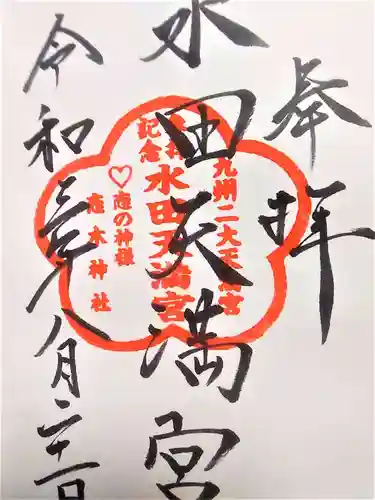 奉拝
水田天満宮
九州二大天満宮
参拝
記念
水田天満宮
♡恋の神様
恋木神社
令和三年八月二十一日